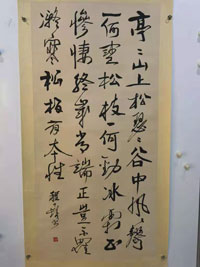 亭〻山上松瑟〻谷中風〻聲
一何盛松枝一何勁冰霜正
慘悽終歲常端正豈不罹
凝寒松柏有本性